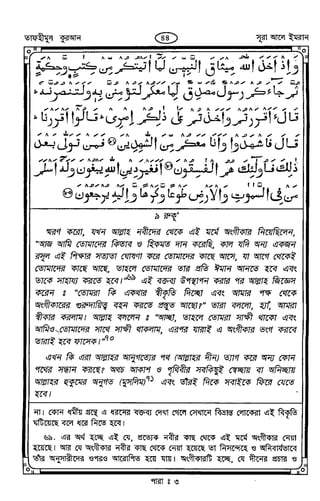 তাফহীমুল কুরআন
৪৪
সূরা আলে ইমরান
وَإِذْ أَخَذَ اللهُ مِيثَاقَ النَّبِيّٖنَ لَمَآ اٰتَيْتُكُمْ مِّنْ كِتٰبٍ وَّحِكْمَةٍ
ثُمَّ جَآءَكُمْ رَسُوْلٌ مُّصَدِّقٌ لِّمَا مَعَكُمْ لَتُؤْمِنُنَّ بِهٖ وَلَتَنْصُرُنَّهٗ ۚ
قَالَ ءَاَقْرَرْتُمْ وَاَخَذْتُمْ عَلٰى ذٰلِكُمْ اِصْرِيْ ۚ قَالُوْٓا اَقْرَرْنَا ۚ
قَالَ فَاشْهَدُوْا وَاَنَا مَعَكُمْ مِّنَ الشّٰهِدِيْنَ ۝ فَمَنْ تَوَلّٰى بَعْدَ
ذٰلِكَ فَاُولٰٓئِكَ هُمُ الْفٰسِقُوْنَ ۝ اَفَغَيْرَ دِيْنِ اللهِ يَبْغُوْنَ وَلَهٗٓ اَسْلَمَ
مَنْ فِي السَّمٰوٰتِ وَالْاَرْضِ طَوْعًا وَّكَرْهًا وَّاِلَيْهِ يُرْجَعُوْنَ ۝
৯ রুকূ'
স্মরণ করো, যখন আল্লাহ নবীদের থেকে এই মর্মে অংগীকার নিয়েছিলেন,
"আজ আমি তোমাদের কিতাব ও হিকমত দান করেছি, কাল যদি অন্য একজন
রসূল এই শিক্ষার সত্যতা ঘোষণা করে তোমাদের কাছে আসে, যা আগে থেকেই
তোমাদের কাছে আছে, তাহলে তোমাদের তার প্রতি ঈমান আনতে হবে এবং
তাকে সাহায্য করতে হবে।"৬৯ এই বক্তব্য উপস্থাপন করার পর আল্লাহ জিজ্ঞেস
করেন : "তোমরা কি একথার স্বীকৃতি দিচ্ছো এবং আমার পক্ষ থেকে
অংগীকারের গুরুদায়িত্ব বহন করতে প্রস্তুত আছো?" তারা বললো, হ্যাঁ, আমরা
স্বীকার করলাম। আল্লাহ বললেন : "আচ্ছা, তাহলে তোমরা সাক্ষী থাকো এবং
আমিও তোমাদের সাথে সাক্ষী থাকলাম, এরপর যারাই এ অংগীকার ভংগ করবে
তারাই হবে ফাসেক।"৭০
এখন কি এরা আল্লাহর আনুগত্যের পথ (আল্লাহর দীন) ত্যাগ করে অন্য কোন
পথের সন্ধান করছে? অথচ আকাশ ও পৃথিবীর সবকিছুই স্বেচ্ছায় বা অনিচ্ছায়
আল্লাহর হুকুমের অনুগত (মুসলিম)৭১ এবং তাঁরই দিকে সবাইকে ফিরে যেতে
হবে।
না। কোন ধর্মীয় গ্রন্থে এ ধরনের বক্তব্য দেখা গেলে সেখানে বিভ্রান্ত লোকেরা এই বিকৃতি
ঘটিয়েছে বলে ধরে নিতে হবে।
৬৯. এর অর্থ হচ্ছে এই যে, প্রত্যেক নবীর কাছ থেকে এই মর্মে অংগীকার নেয়া
হয়েছে। আর যে অংগীকার নবীর কাছ থেকে নেয়া হয়েছে তা নিসন্দেহে ও অনিবার্যভাবে
তাঁর অনুসারীদের ওপরও আরোপিত হয়ে যায়। অংগীকারটি হচ্ছে, যে দীনের প্রচার ও
পারা : ৩